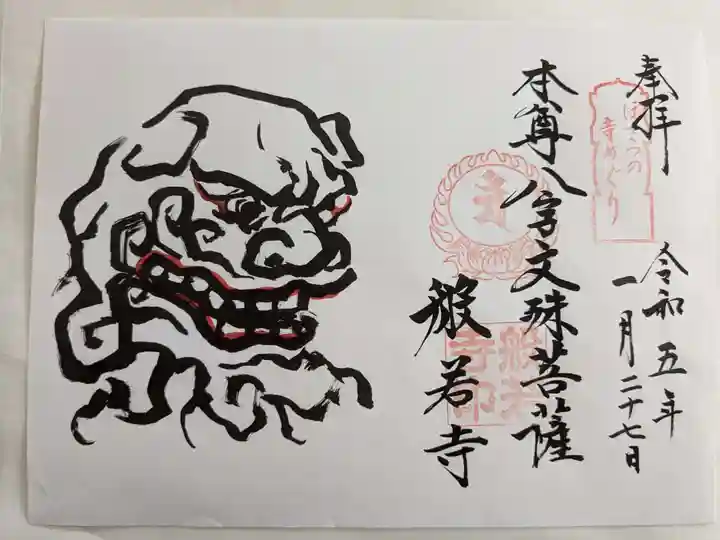 奉拝
ほとけの
寺めぐり
令和五年
一月二十七日
本尊八字文殊菩薩
般若寺
般若
寺印